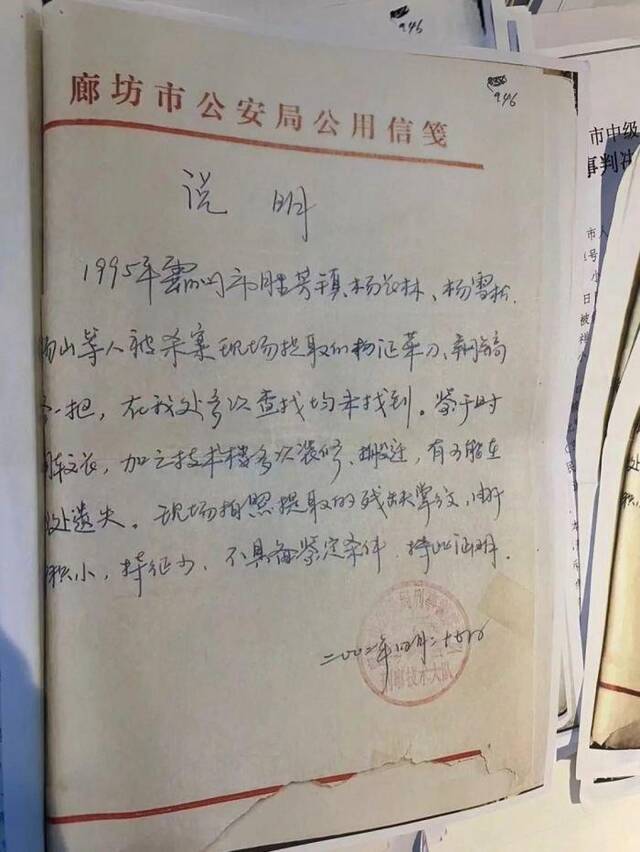 946
946
廊坊市公安局公用信笺
说 明
1995年霸州市胜芳镇杨长林、杨雪松、
山等人被杀案现场提取的物证菜刀、钢
一把,在我处多次查找均未找到。鉴于时
间较长,加之技术楼多次装修、搬迁,有可能在
处遗失。现场拍照提取的残缺掌纹,由于
积小,特征少,不具备鉴定条件,特此证明。
二00二年四月二十
刑事技术大队
市中级
事判决